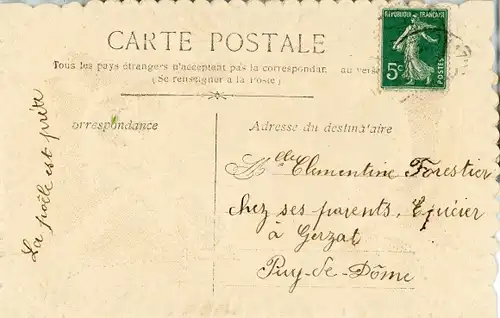 CARTE POSTALE
REPUBLIQUE FRANÇAISE
5c
POSTES
Tous les pays étrangers n'acceptent pas la correspondan au verso
(Se renseigner à la Poste)
orrespondance
Adresse du destina'aire
La poêle est prête
Melle Clementine Forestier
chez ses parents, Epicier
à Gerzat
Puy-de-Dôme